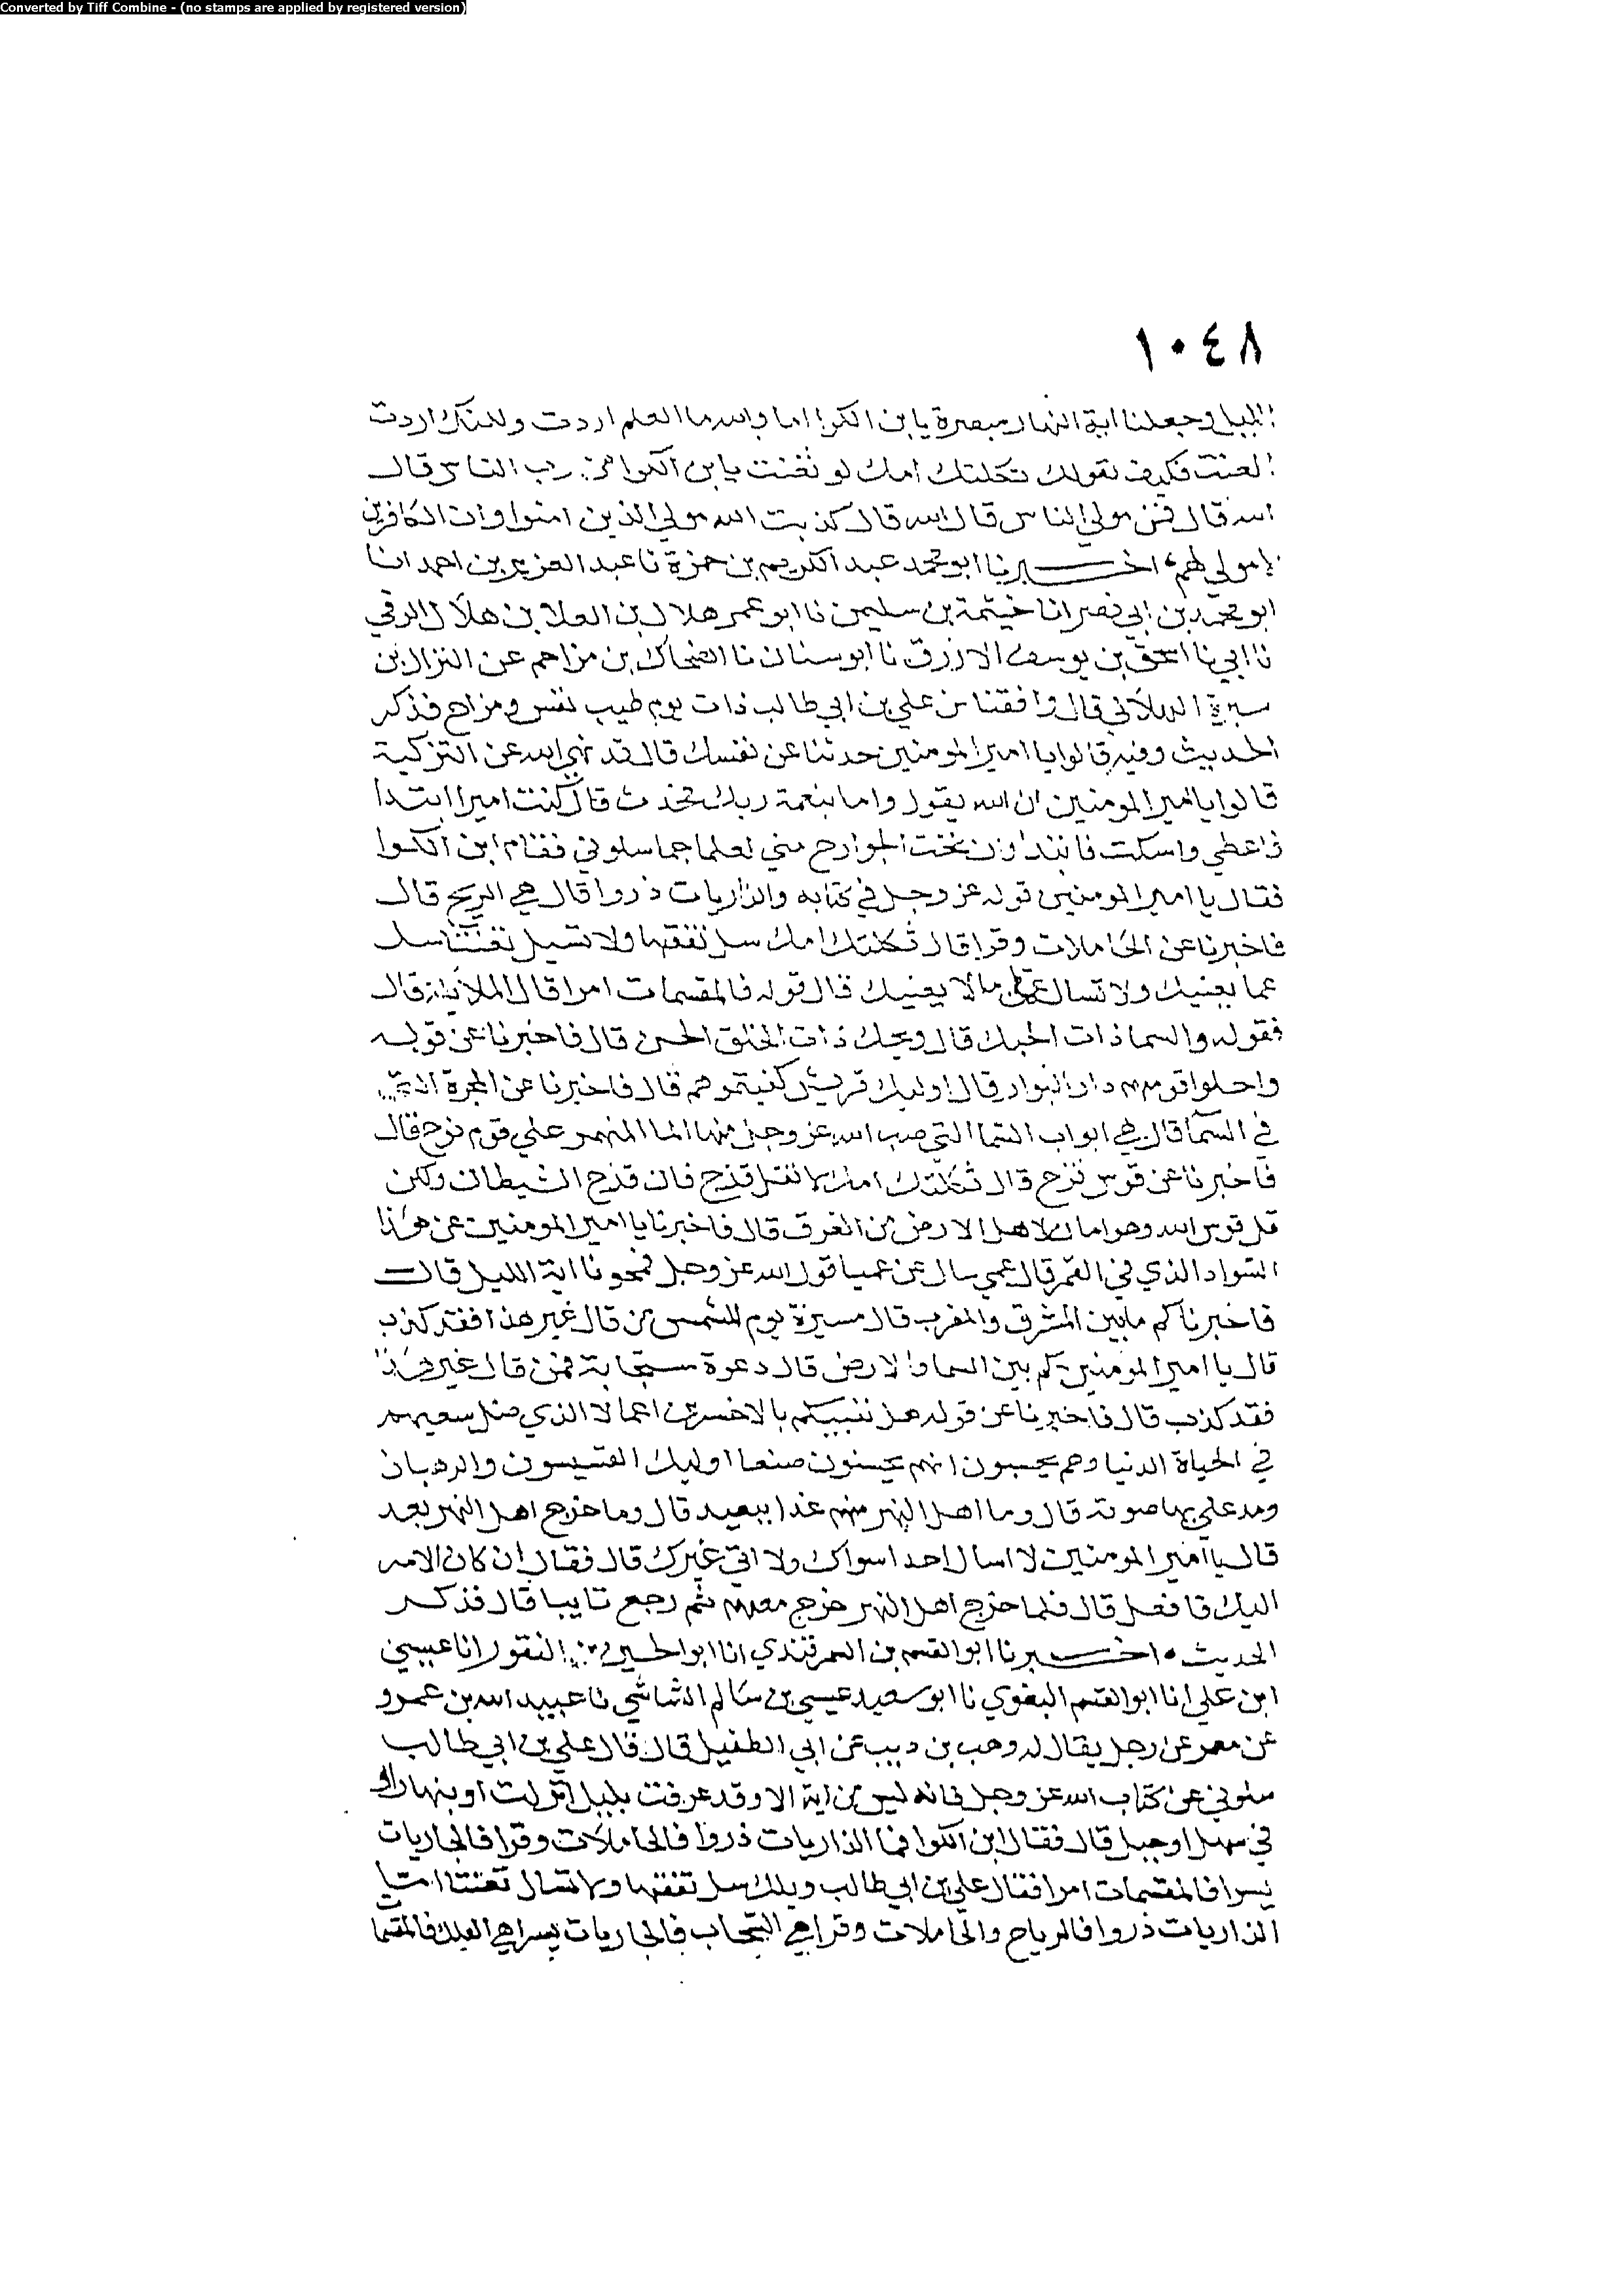 Converted by Tiff Combine - (no stamps are applied by registered version)
١٠٤٨
الليل وجعلنا اية النهار مبصرة يا بن الكوا اما والله ما العلم اردت ولكنك اردت
العنت فكيف تقولك ثكلتك امك لو تفننت يا بن الكوا من رب الناس قال
الله قال فمن مولي الناس قال الله قال كذبت الله مولي الذين امنوا وان الكافرين
لا مولي لهم، اخـــبرنا ابو محمد عبد الكريم بن حمزة نا عبد العزيز بن احمد انا
ابو محمد بن ابي نصر انا خيثمة بن سليمن نا ابو عمر هلال بن العلا بن هلال الرقي
نا ابي نا اسحق بن يوسف الازرق نا ابو سنان نا الضحاك بن مزاحم عن النزال بن
سبرة الهلالي قال وافقنا من علي بن ابي طالب ذات يوم طيب نفس ومزاح فذكر
الحديث وفيه قالوا يا امير المومنين حدثنا عن نفسك قال قد نهي الله عن التزكية
قالوا يا امير المومنين ان الله يقول واما بنعمة ربك تحدث قال كنت اميرا ابتدا
فاعطي واسكت فابتدا وان تحت الجوارح مني لعلما جما سلوني فقام ابن الكوا
فقال يا امير المومنين قوله عز وجل في كتابه والذاريات ذروا قال هي الريح قال
فاخبرنا عن الحاملات وقرا قال ثكلتك امك سل تفقها ولا تسيل تعنتا سل
عما يعنيك ولا تسال عما لا يعنيك قال قوله فالمقسمات امرا قال الملائكة قال
فقوله والسما ذات الحبك قال ويحك ذات الخلق الحسن قال فاخبرنا عن قوله
واحلوا قومهم دار البوار قال اوليك قريش كفيتموهم قال فاخبرنا عن المجرة التي
في السما قال هي ابواب السما التي صب الله عز وجل منها الما المنهمر علي قوم نوح قال
فاخبرنا عن قوس قزح قال ثكلتك امك لا تقل قزح فان قزح الشيطان ولكن
قل قوس الله وهو امان لاهل الارض من الغرق قال فاخبرنا يا امير المومنين عن هذا
السواد الذي في القمر قال عمي سال عن عميا قول الله عز وجل فمحونا اية الليل قال
فاخبرنا كم ما بين المشرق والمغرب قال مسيرة يوم للشمس من قال غير هذا فقد كذب
قال يا امير المومنين كم بين السما والارض قال دعوة مستجابة فمن قال غير هذا
فقد كذب قال فاخبرنا عن قوله هل ننبيكم بالاخسرين اعمالا الذي ضل سعيهم
في الحياة الدنيا وهم يحسبون انهم يحسنون صنعا اوليك القسيسون والرهبان
ومد علي بها صوته قال وما اهل النهر منهم غدا ببعيد قال وما خرج اهل النهر بعد
قال يا امير المومنين لا اسال احدا سواك ولا اتي غيرك قال فقال ان كان الامر
اليك فافعل قال فلما خرج اهل النهر خرج معهم ثم رجع تايبا قال فذكر
الحديث • اخـــبرنا ابو القسم بن السمرقندي انا ابو الحسين بن النقور انا عيسي
ابن علي انا ابو القسم البغوي نا ابو سعيد عيسي بن سالم الشاشي نا عبيد الله بن عمرو
عن معمر عن رجل يقال له وهب بن دبيب عن ابي الطفيل قال قال علي بن ابي طالب
سلوني عن كتاب الله عز وجل فانه ليس من اية الا وقد عرفت بليل انزلت او بنهار او
في سهل او جبل قال فقال ابن الكوا فما الذاريات ذروا فالحاملات وقرا فالجاريات
يسرا فالمقسمات امرا فقال علي بن ابي طالب ويلك سل تفقها ولا تسال تعنتا اما
الذاريات ذروا فالرياح والحاملات وقرا هي السحاب فالجاريات يسرا هي الفلك فالمقسما